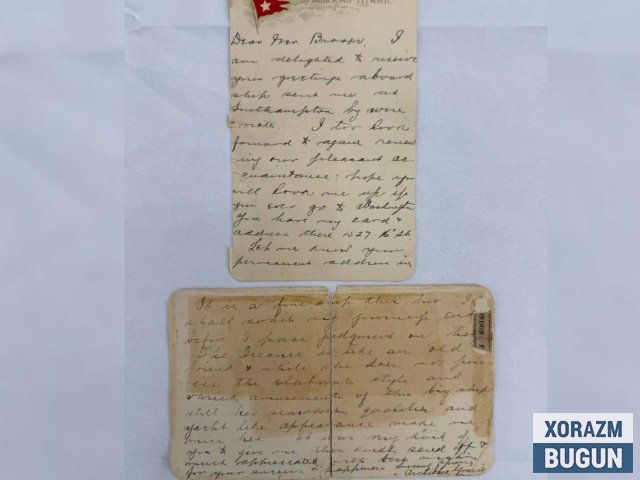 On board R.M.S TITANIC
Dear Mr. I
am delighted to receive
your greetings aboard
ship sent me at
Southampton by wire
note. I too look
forward to again renew
ing our pleasant ac-
quaintance: hope you
will look me up if
you ever go to Washington
You have my card &
address there 1027 16th St.
Let me know your
permanent address in
It is a fine ship this but I
shall await my journey's end
before I pass judgment on her
The Oceanic is like an old
friend & while she does not pos
sess the elaborate style and
varied amusements of this big ship
still her seaworthy qualities and
yacht like appearance make me
miss her. It was very kind of
you to give me this kindly send off &
much appreciated with best wishes
for your success & happiness
Archibald Gracie
XORAZM
BUGUN